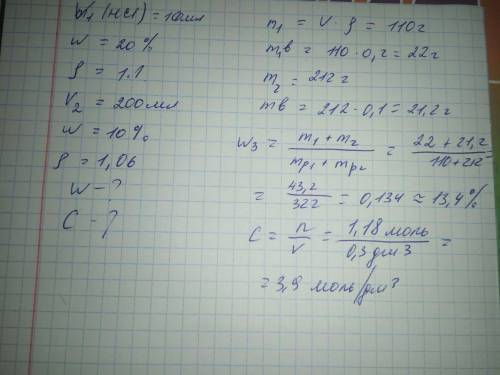 V₁ (HCl) = 100мл
W = 20%
ρ = 1.1
V₂ = 200мл
W = 10%
ρ = 1,06
W - ?
C - ?
m₁ = V · ρ = 110г
m₁в = 110 · 0,2 = 22г
m₂ = 212г
mв = 212 · 0,1 = 21,2г
W₃ = (m₁ + m₂) / (mр₁ + mр₂) = (22 + 21,2) / (110 + 212)
= 43,2 / 322 = 0,134 ≈ 13,4%
C = n / V = 1,18 моль / 0,3 дм3 =
= 3,9 моль/дм³